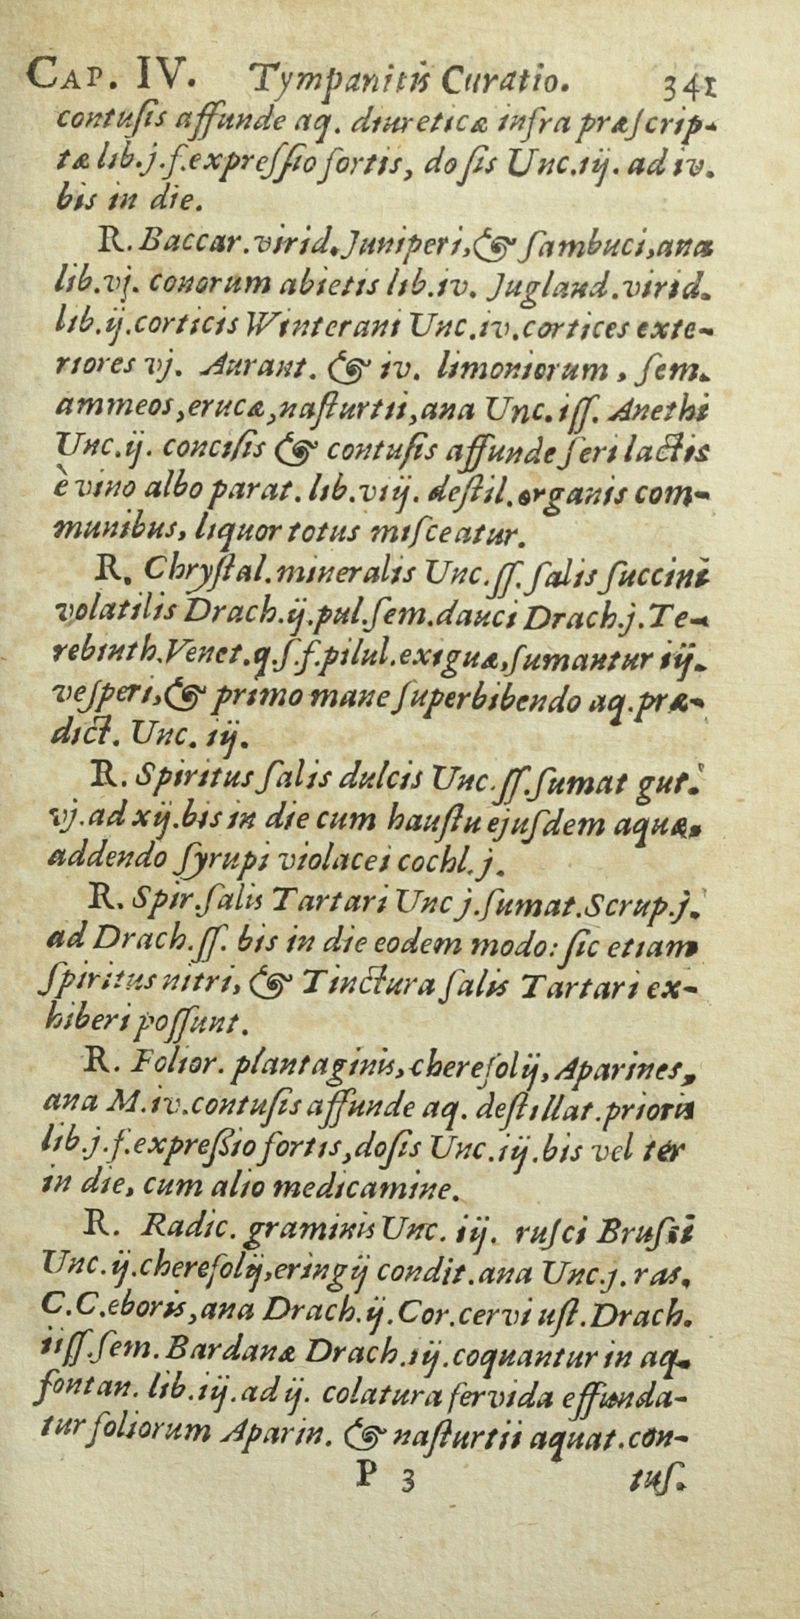 CAP. IV. Tympanitis Curatio. 341
contuſis affunde aq. diureticæ infra præſcrip-
tæ lib.j.f.expreſſio fortis, doſis Unc.iij. ad iv.
bis in die.
R. Baccar.virid.Juniperi,& ſambuci,ana
lib.vj. conorum abietis lib.iv. Jugland.virid.
lib.ij.corticis Winterani Unc.iv.cortices exte-
riores vj. Aurant. & iv. limoniorum, ſem.
ammeos,erucæ,naſturtii,ana Unc.iſſ. Anethi
Unc.ij. conciſis & contuſis affunde ſeri lactis
è vino albo parat. lib.viij. deſtil.organis com-
munibus, liquor totus miſceatur.
R. Chryſtal.mineralis Unc.ſſ.ſalis ſuccini
volatilis Drach.ij.pul.ſem.dauci Drach.j.Te-
rebinth.Venet.q.ſ.f.pilul.exiguæ,ſumantur iij.
veſperi,& primo mane ſuperbibendo aq.præ-
dict. Unc. iij.
R. Spiritus ſalis dulcis Unc.ſſ.ſumat gut.
vj.ad xij.bis in die cum hauſtu ejuſdem aquæ,
addendo ſyrupi violacei cochl.j.
R. Spir.ſalis Tartari Unc j.ſumat.Scrup.j.
ad Drach.ſſ. bis in die eodem modo: ſic etiam
ſpiritus nitri, & Tinctura ſalis Tartari ex-
hiberi poſſunt.
R. Folior. plantaginis,cherefolij, Aparines,
ana M.iv.contuſis affunde aq. deſtillat.prioris
lib.j.f.expreßio fortis,doſis Unc.iij.bis vel ter
in die, cum alio medicamine.
R. Radic. graminis Unc. iij. ruſci Bruſii
Unc.ij.cherefolij,eringij condit.ana Unc.j. ras.
C.C.eboris,ana Drach.ij.Cor.cervi uſt.Drach.
iiſſ.ſem.Bardanæ Drach.iij.coquantur in aq.
fontan. lib.iij.ad ij. colatura fervida effunda-
tur foliorum Aparin. & naſturtii aquat.con-
P 3 tuſ.